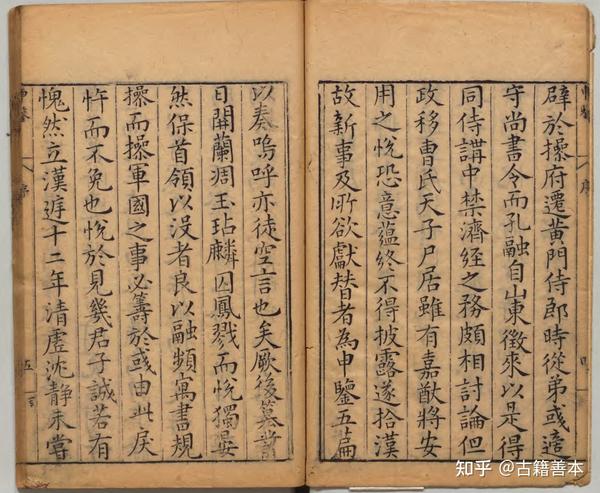 辟於操府遷黃門侍郎時從弟彧適
守尚書令而孔融自山東徵來以是得
同侍講中禁濟經之務頗相討論但
政移曹氏天子尸居雖有嘉猷將安
用之悅恐意蘊終不得披露遂拾漢
故新事及所欲獻替者為申鑒五萹
以奏嗚呼亦徒空言也矣厥後
日開蘭凋玉玷麟囚鳳戮而悅獨晏
然保首領以没者良以融頻寓書規
操而操軍國之事必籌於彧由此戾
忤而不免也悅於見幾君子誠若有
愧然立漢庭十二年清虛沈静未嘗
序
五
知乎 @古籍善本